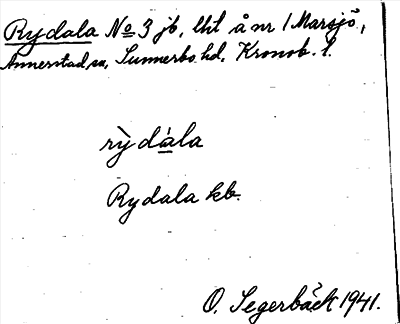 Rydala No 3 jb, lht å nr 1 Marsjö,
Annerstad, sn, Sunnerbo. hd. Kronob. l.
rỳdála
Rydala kb.
O. Segerbäck 1941.